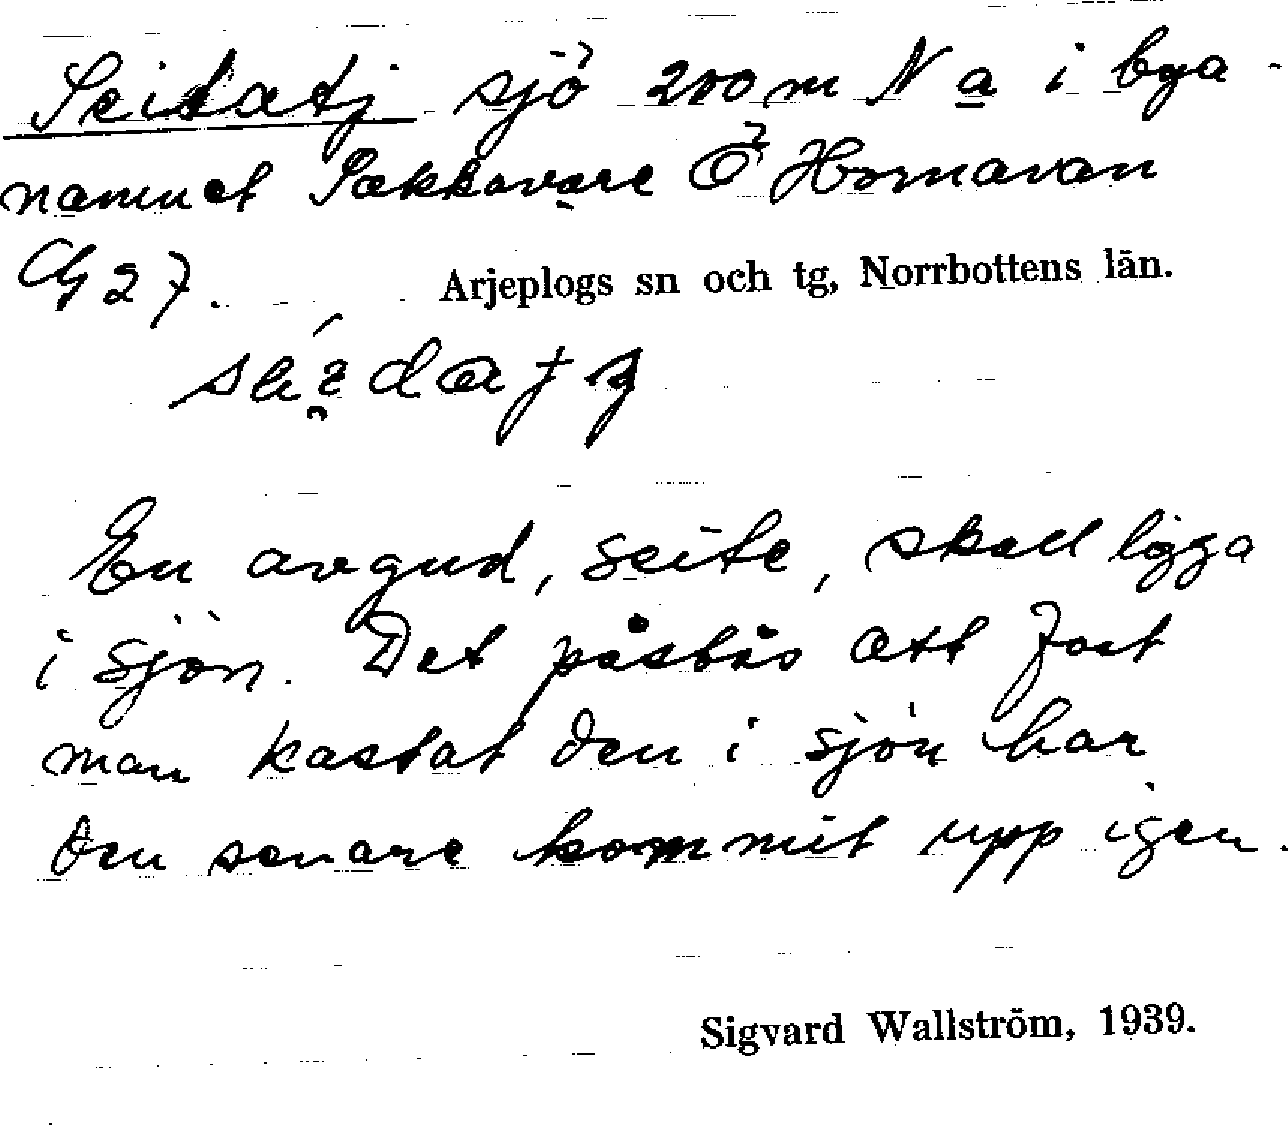 Seitatj sjö 200 m N a i bya-
namnet Säkkavare Ö Hornavan
G 27. Arjeplogs sn och tg, Norrbottens län.
En avgud, seite, skall ligga
i sjön. Det påstås att fast
man kastat den i sjön har
den senare kommit upp igen.
Sigvard Wallström, 1939.